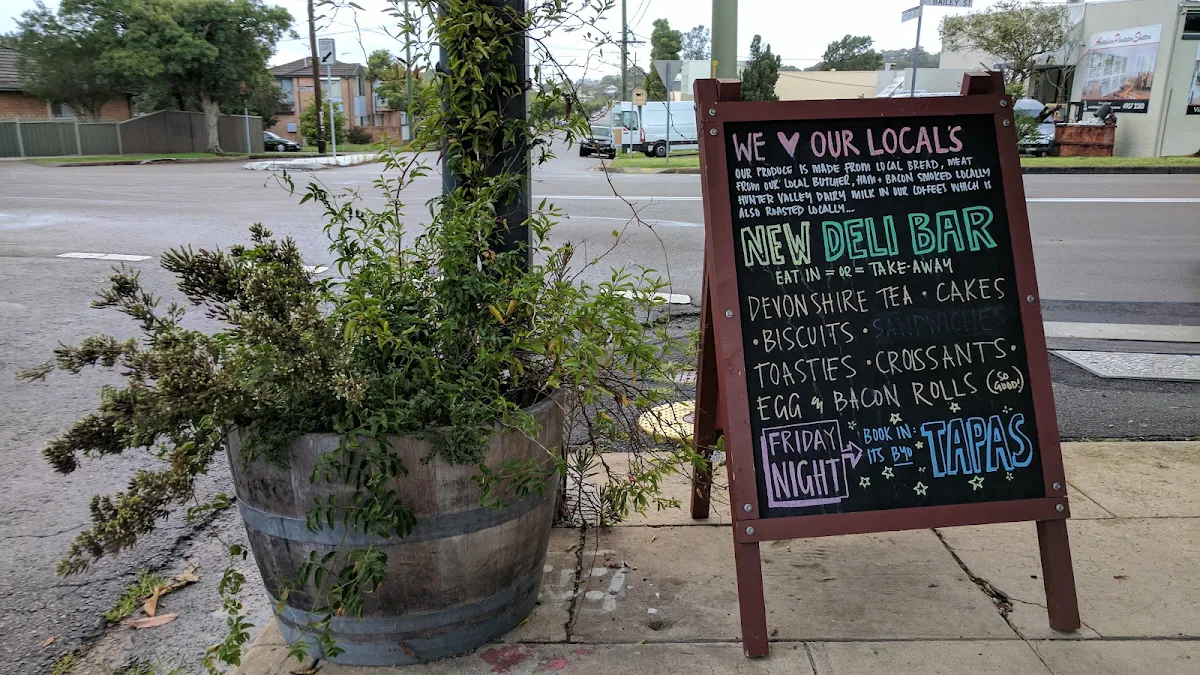 BAILEY ST
4957 2380
WE ♥ OUR LOCAL'S
OUR PRODUCE IS MADE FROM LOCAL BREAD, MEAT
FROM OUR LOCAL BUTCHER, HAM + BACON SMOKED LOCALLY
HUNTER VALLEY DAIRY MILK IN OUR COFFEET WHICH IS
ALSO ROASTED LOCALLY...
NEW DELI BAR
EAT IN = OR = TAKE-AWAY
DEVONSHIRE TEA • CAKES
• BISCUITS • SANDWICHES
TOASTIES • CROISSANTS •
EGG & BACON ROLLS (SO GOOD!)
FRIDAY NIGHT
BOOK IN:
ITS BYO
TAPAS